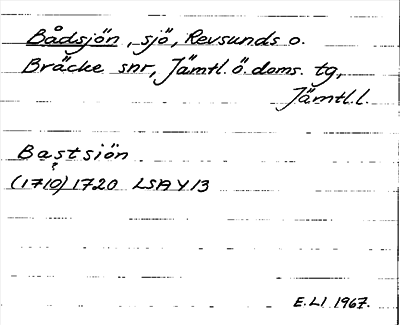 Bådsjön, sjö, Revsunds o.
Bräcke snr, Jämtl. ö. doms. tg,
Jämtl. l.
Bastsiön
(1710) 1720 LSA Y 13
E. Ll 1967.